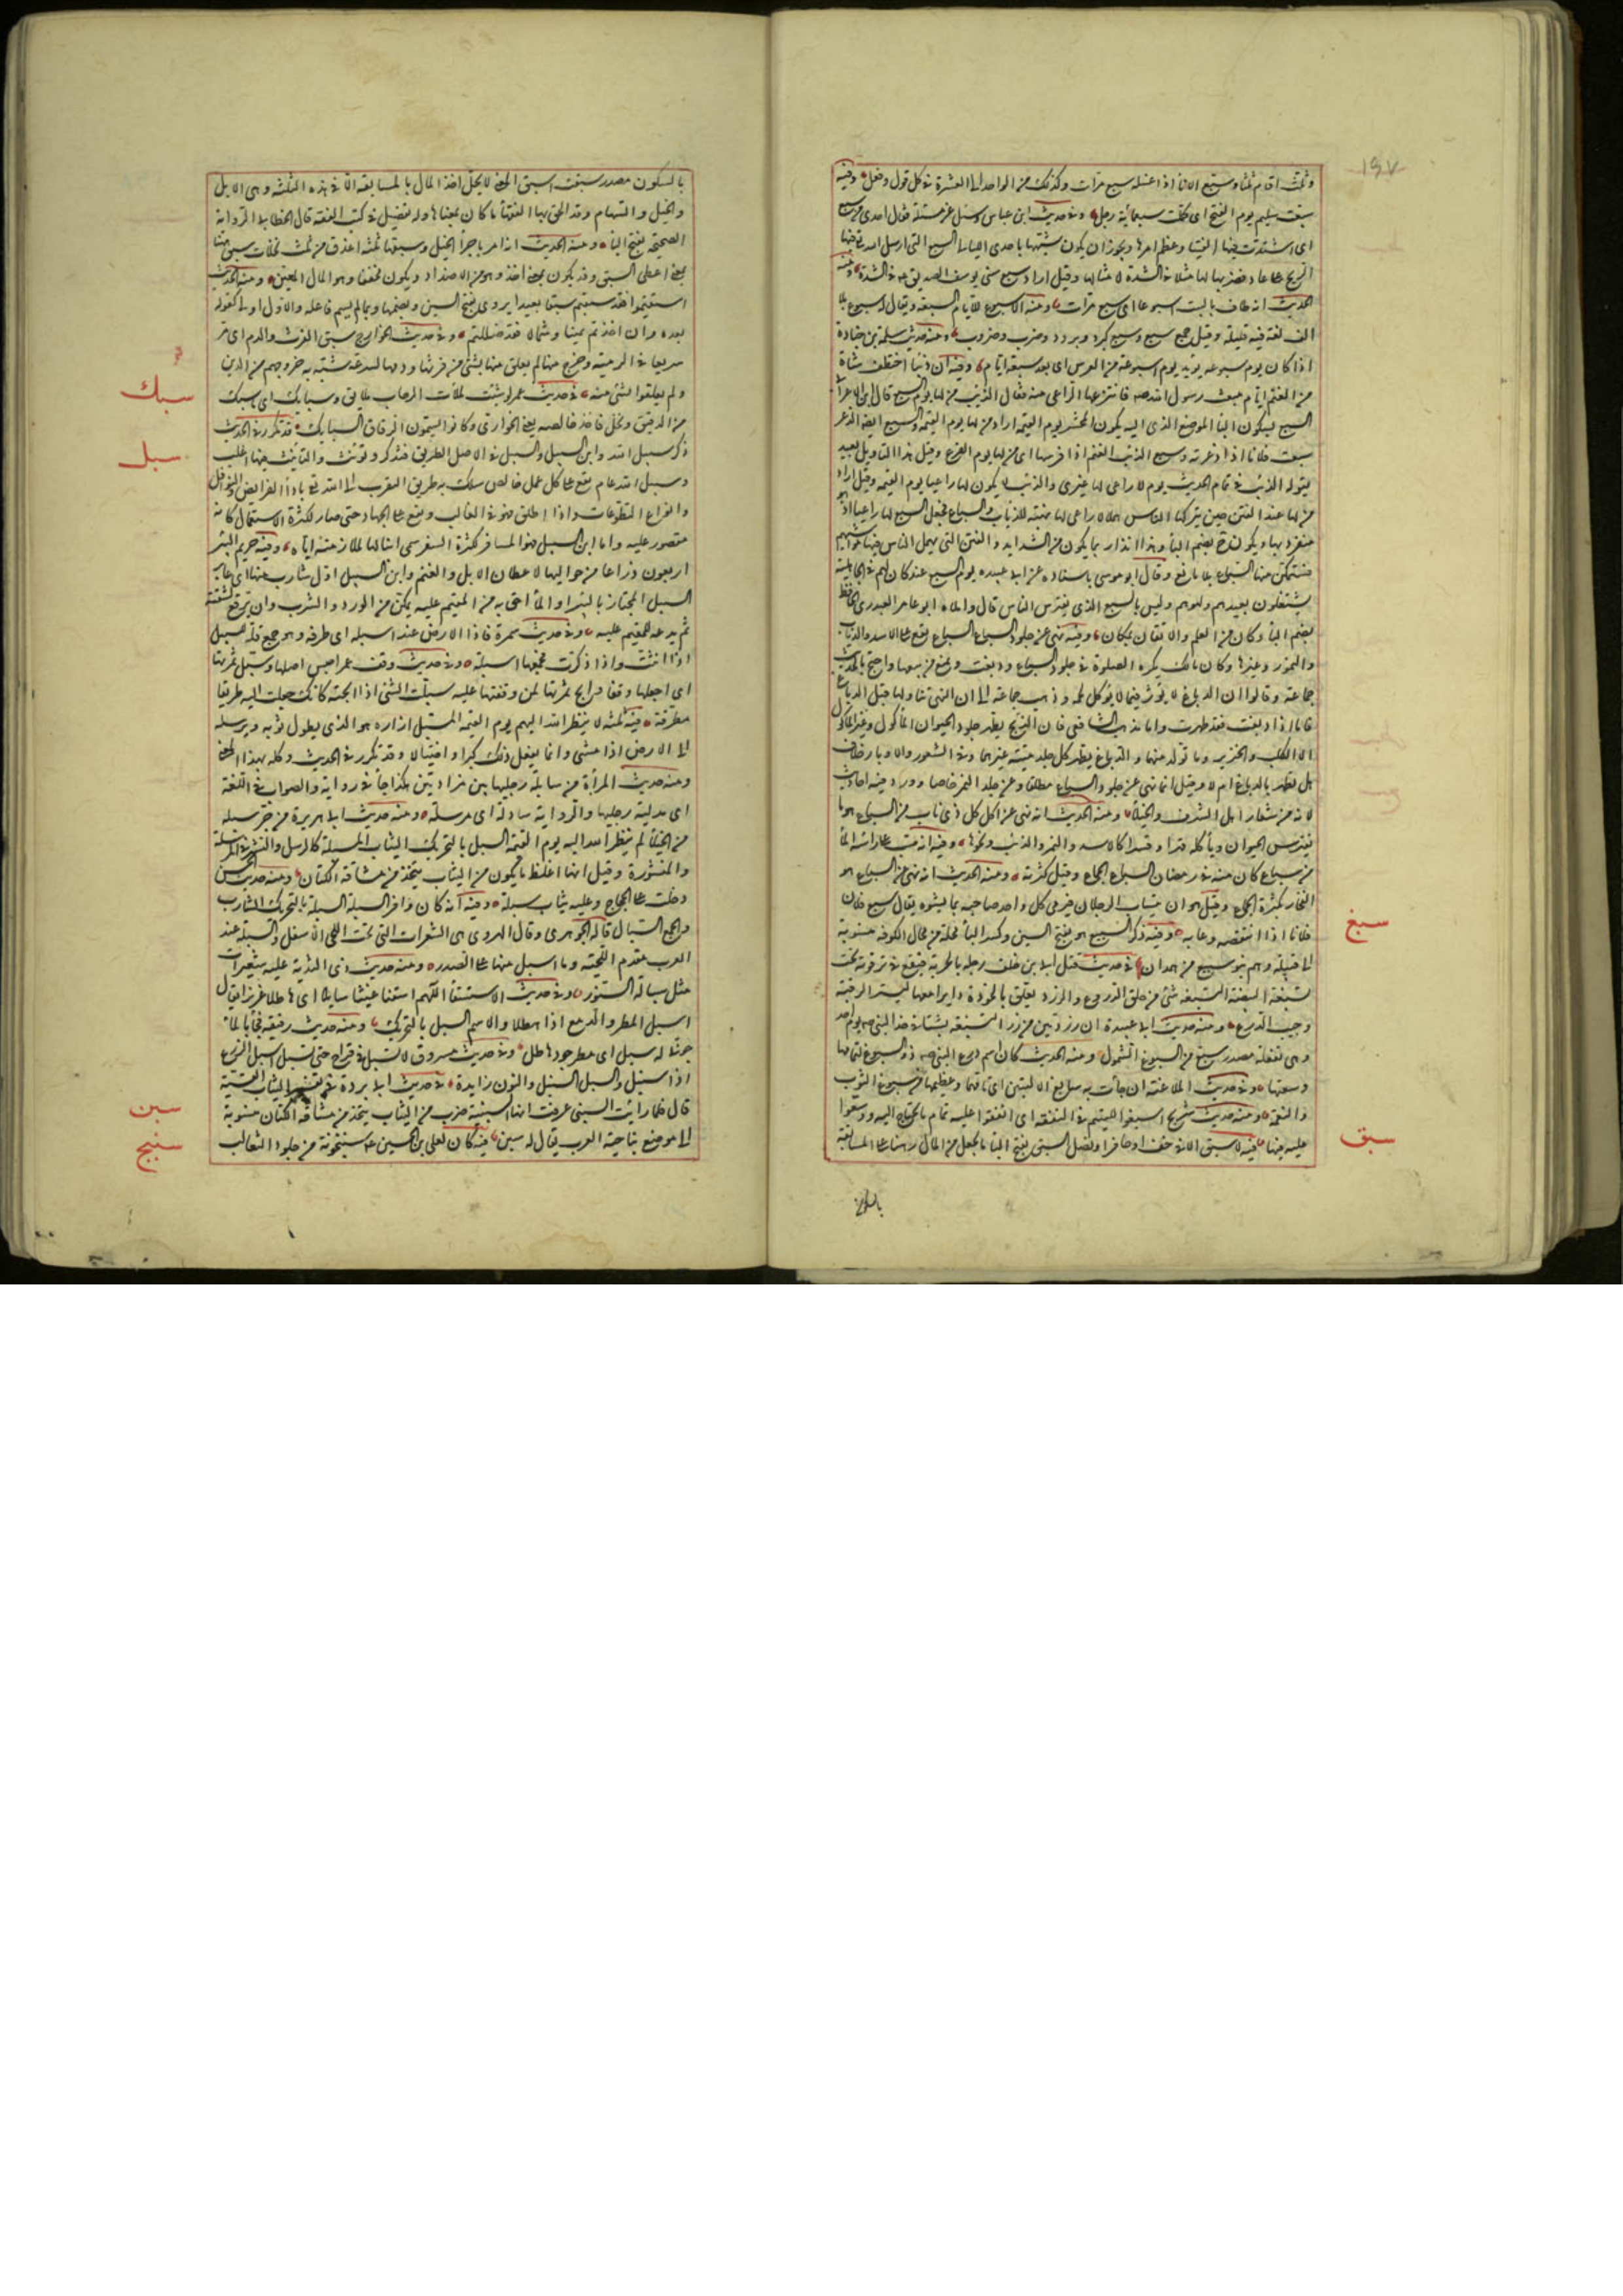 ١٩٧
وثلث اقام ثلثا وسبع الاناء اذا غسله سبع مرات وكذلك من الواحد الى العشرة في كل قول وفعل وفيه
سبعت سليم يوم الفتح اى كملت سبعمائة رجل وفي حديث ابن عباس وسئل عن مسئلة فقال احدى من سبع
اى اشتدت فيها الفتيا وعظم امرها ويجوز ان يكون شبهها باحدى الليالى السبع التى ارسل الله فيها
الريح على عاد فضربها لها مثلا في الشدة لاشكالها وقيل اراد سبع سنى يوسف الصديق في الشدة ومنه
الحديث انه طاف بالبيت اسبوعا اى سبع مرات ومنه الاسبوع للايام السبعة ويقال له سبوع بلا
الف لغة فيه قليلة وقيل جمع سبع وسبع كبرد وبرود وضرب وضروب ومنه حديث سلمة بن جنادة
اذا كان يوم سبوعه يريد يوم اسبوعه من العرس اى بعد سبعة ايام وفيه ان ذئبا اختطف شاة
من الغنم ايام مبعث رسول الله صم فانتزعها الراعى منه فقال الذئب من لها يوم السبع قال ابن الاعرابى
السبع بسكون الباء الموضع الذى اليه يكون المحشر يوم القيمة اراد من لها يوم القيمة والسبع ايضا الذعر
سبعت فلانا اذا ذعرته وسبع الذئب الغنم اذا فرسها اى من لها يوم الفزع وقيل هذا التاويل يفسد
بقوله الذئب في تمام الحديث يوم لا راعى لها غيرى والذئب لا يكون لها راعيا يوم القيمة وقيل اراد
من لها عند الفتن حين يتركها الناس هملا لا راعى لها نهبة للذئاب والسباع فجعل السبع لها راعيا اذ هو
منفرد بها ويكون ح بضم الباء وهذا انذار بما يكون من الشدايد والفتن التى يهمل الناس فيها مواشيهم
فتستمكن منها السباع بلا مانع وقال ابو موسى باسناده عن ابى عبيدة يوم السبع عيد كان لهم في الجاهلية
يشتغلون بعيدهم ولهوهم وليس بالسبع الذى يفترس الناس قال واملاه ابو عامر العبدرى الحافظ
بضم الباء وكان من العلم والاتقان بمكان وفيه نهى عن جلود السباع السباع يقع على الاسد والذئاب
والنمور وغيرها وكان مالك يكره الصلوة في جلود السباع ودبغت ويمنع من بيعها واحتج بالحديث
جماعة وقالوا ان الدباغ لا يؤثر فيما لا يؤكل لحمه وذهب جماعة الى ان النهى تناولها قبل الدباغ
فاما اذا دبغت فقد طهرت واما مذهب الشافعى فان الذبح يطهر جلود الحيوان المأكول وغير المأكول
الا الكلب والخنزير وما تولد منهما والدباغ يطهر كل جلد ميتة غيرهما وفي الشعور والاوبار خلاف
هل تطهر بالدباغ ام لا وقيل انما نهى عن جلود السباع مطلقا وعن جلد النمر خاصا وورد فيه احاديث
لانه من شعار اهل السرف والخيلاء ومنه الحديث انه نهى عن اكل كل ذى ناب من السباع هو ما
يفترس الحيوان ويأكله قهرا وقسرا كالاسد والنمر والذئب ونحوها وفيه انه صب على راسه الماء
من سباع كان منه في رمضان السباع الجماع وقيل كثرته ومنه الحديث انه نهى عن السباع هو
الفخار بكثرة الجماع وقيل هو ان يتساب الرجلان فيرمى كل واحد صاحبه بما يسوءه يقال سبع فلان
فلانا اذا انتقصه وعابه وفيه ذكر السبيع هو بفتح السين وكسر الباء محلة من محال الكوفة منسوبة
الى قبيلة وهم بنو سبيع من همدان في حديث قتل ابى بن خلف زجله بالحربة فتقع في ترقوته تحت
سبغ
تسبغة البيضة التسبغة شئ من حلق الدروع والزرد يعلق بالخوذة دايرا معها ليستر الرقبة
وجيب الدرع ومنه حديث ابى عبيدة ان زردتين من زرد التسبغة نشبتا في خد النبى صم يوم احد
وهى تفعلة مصدر سبغ من السبوغ الشمول ومنه الحديث كان اسم درع النبى صم ذو السبوغ لتمامها
وسعتها وفي حديث الملاعنة ان جاءت به سابغ الاليتين اى تامهما وعظيمهما من سبوغ الثوب
والنعمة ومنه حديث شريح اسبغوا لليتيم في النفقة اى انفقوا عليه تمام ما يحتاج اليه ووسعوا
سبق
عليه فيها فيه لا سبق الا في خف او حافر او نصل السبق بفتح الباء ما يجعل من المال رهنا على المسابقة
بالسكون
بالسكون مصدر سبقت اسبق المعنى لا يحل اخذ المال بالمسابقة الا في هذه الثلثة وهى الابل
والخيل والسهام وقد الحق بها الفقهاء ما كان بمعناها وله تفصيل في كتب الفقه قال الخطابى الرواية
الصحيحة بفتح الباء ومنه الحديث انه امر باجراء الخيل وسبقها ثلثة اعذق من ثلث نخلات سبق هنا
بمعنى اعطى السبق وقد يكون بمعنى اخذ وهو من الاضداد ويكون مخففا وهو المال المعين ومنه الحديث
استقيموا فقد سبقتم سبقا بعيدا يروى بفتح السين وبضمها وبما لم يسم فاعله والاول اولى لقوله
بعده وان اخذتم يمينا وشمالا فقد ضللتم وفي حديث الخوارج سبق الفرث والدم اى مر
سريعا في الرمية وخرج منها لم يعلق منها بشئ من فرثها ودمها لسرعته شبه به خروجهم من الدين
سبك
ولم يعلقوا بشئ منه في حديث عمر لو شئت لملأت الرحاب صلائق وسبائك اى ما سبك
من الدقيق ونخل فاخذ خالصه يعنى الحوارى وكانوا يسمون الرقاق السبائك قد تكرر في الحديث
سبل
ذكر سبيل الله وابن السبيل والسبيل في الاصل الطريق فيذكر ويؤنث والتانيث فيها اغلب
وسبيل الله عام يقع على كل عمل خالص سلك به طريق التقرب الى الله تع باداء الفرائض والنوافل
وانواع التطوعات واذا اطلق فهو في الغالب واقع على الجهاد حتى صار لكثرة الاستعمال كانه
مقصور عليه واما ابن السبيل فهو المسافر كثرة السفر سمى ابنا لها لملازمته اياها وفيه حريم البئر
اربعون ذراعا من حواليها لاعطان الابل والغنم وابن السبيل اول شارب منها اى عابر
السبيل المجتاز بالبئر او الماء احق به من المقيم عليه يمكن من الورد والشرب وان يرفع لشفته
ثم يدعه للمقيم عليه وفي حديث سمرة فاذا الارض عند اسبله اى طرقه وهو جمع قلة للسبيل
اذا انثت واذا ذكرت فجمعها اسبلة وفي حديث وقف عمر احبس اصلها وسبل ثمرتها
اى اجعلها وقفا وابح ثمرتها لمن وقفتها عليه سبلت الشئ اذا ابحته كانك جعلت اليه طريقا
مطرقة فيه ثلثة لا ينظر الله اليهم يوم القيمة المسبل ازاره هو الذى يطول ثوبه ويرسله
الى الارض اذا مشى وانما يفعل ذلك كبرا واختيالا وقد تكرر في الحديث وكله بهذا المعنى
ومنه حديث المرأة من سابلة رجليها بين مزادتين هكذا جاء في رواية والصواب في اللغة
اى مدلية رجليها والرواية سادلة اى مرسلة ومنه حديث ابى هريرة من جر سبله
من الخيلاء لم ينظر الله اليه يوم القيمة السبل بالتحريك الثياب المسبلة كالرسل والنشر في المرسلة
والمنشورة وقيل انها اغلظ ما يكون من الثياب يتخذ من مشاقة الكتان ومنه حديث الحسن
دخلت على الحجاج وعليه ثياب سبلة وفيه انه كان وافر السبلة السبلة بالتحريك الشارب
والجمع السبال قاله الجوهرى وقال الهروى هى الشعرات التى تحت اللحى الاسفل والسبلة عند
العرب مقدم اللحية وما اسبل منها على الصدر ومنه حديث ذى الثدية عليه شعيرات
مثل سبالة السنور وفي حديث الاستسقاء اللهم اسقنا غيثا سابلا اى هاطلا غزيرا يقال
اسبل المطر والدمع اذا هطلا والاسم السبل بالتحريك ومنه حديث رقيقة فجاد بالماء
جونى له سبل اى مطر جود هاطل وفي حديث مسروق لا تسلم في قراح حتى يسبل اسبل الزرع
اذا سنبل والسبل السنبل والنون زايدة في حديث ابى بردة في تفسير الثياب القسية
سبن
قال فلما رأيت السبنى عرفت انها السبنية ضرب من الثياب يتخذ من مشاقة الكتان منسوبة
سبنج
الى موضع بناحية المغرب يقال له سبن فيه كان لعلى بن الحسين عم سبنجونة من جلود الثعالب